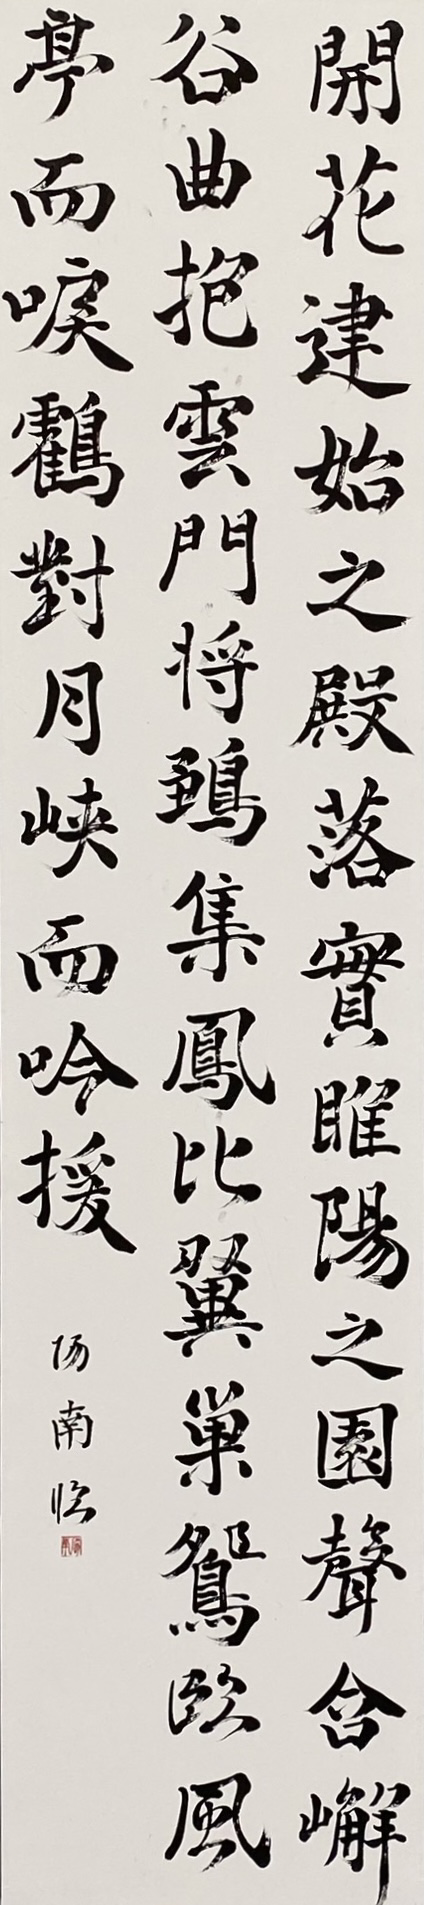 開花建始之殿落實睢陽之園聲含嶰
谷曲抱雲門将鶵集鳳比翼巢鴛臨風
亭而唳鸖對月峽而吟援
南临